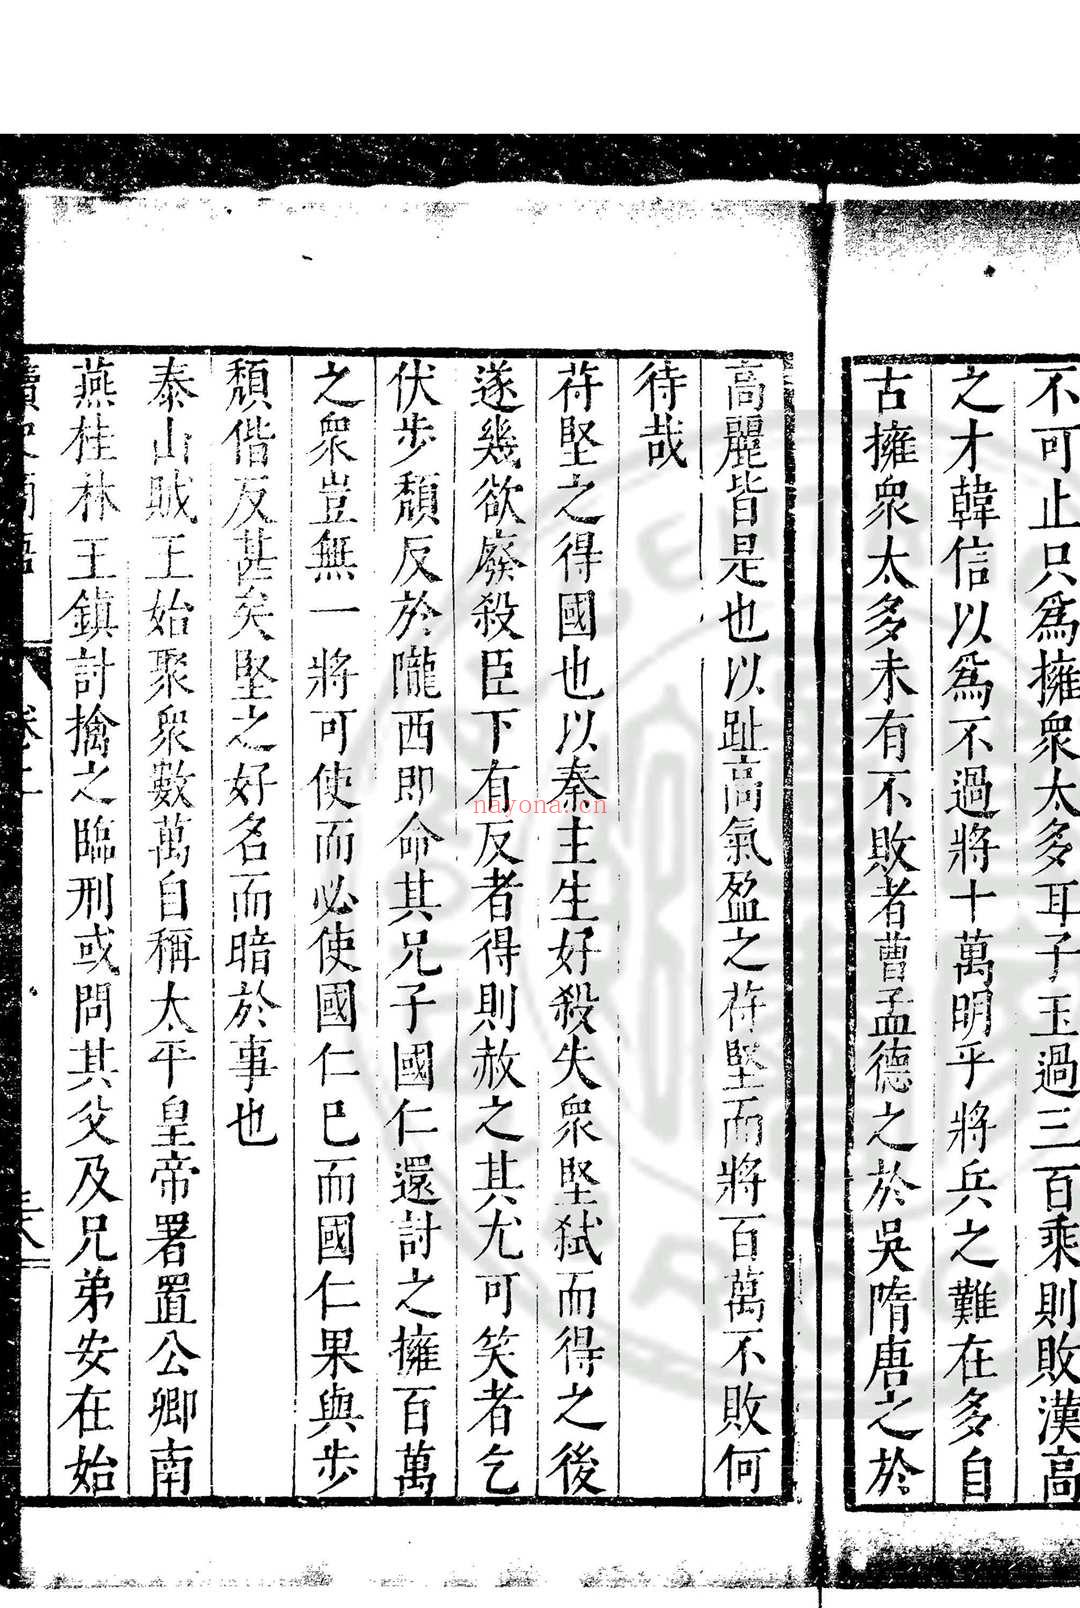 不可止只爲擁衆太多耳子玉過三百乘則敗漢高
之才韓信以爲不過將十萬明乎將兵之難在多自
古擁衆太多未有不敗者曹孟德之於吳隋唐之於
高麗皆是也以趾高氣盈之苻堅而將百萬不敗何
待哉
苻堅之得國也以秦主生好殺失衆堅弒而得之後
遂幾欲廢殺臣下有反者得則赦之其尤可笑者乞
伏步頹反於隴西即命其兄子國仁還討之擁百萬
之衆豈無一將可使而必使國仁巳而國仁果與步
頹偕反甚矣堅之好名而暗於事也
泰山賊王始聚衆數萬自稱太平皇帝署置公卿南
燕桂林王鎮討擒之臨刑或問其父及兄弟安在始
nayona.cn